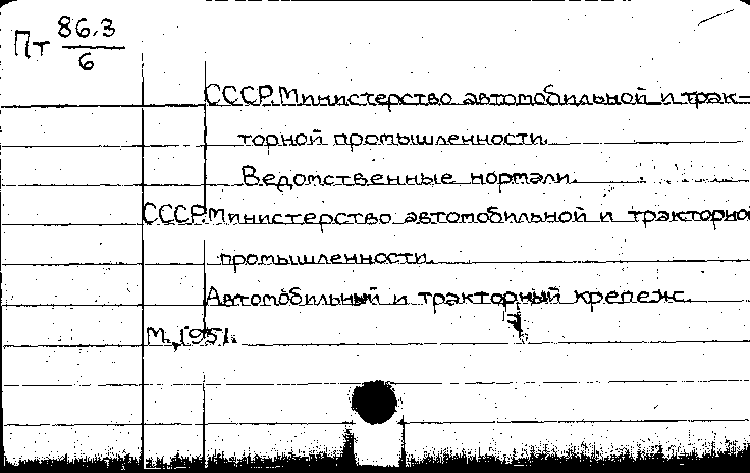 Пт 86.3
6
СССР. Министерство автомобильной и трак-
торной промышленности.
Ведомственные нормали.
СССР. Министерство автомобильной и тракторной
промышленности.
Автомобильный и тракторный крепеж.
М., 1951.